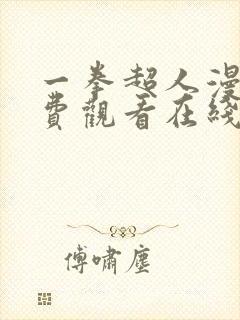 一拳超人漫
費觀看在綫
傅嘯塵